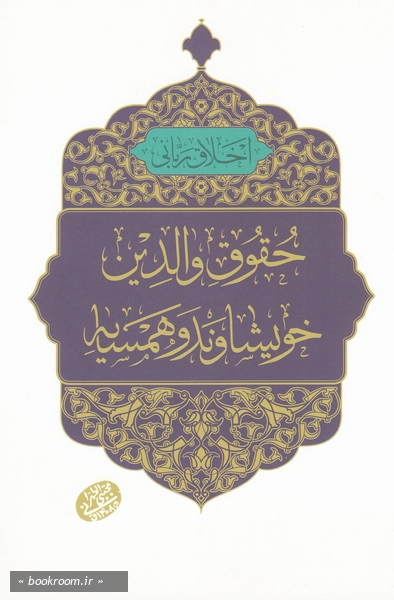 اخلاق ربانی
حُقُوقِ والدین
خویشاوند و همسایه
« bookroom.ir »